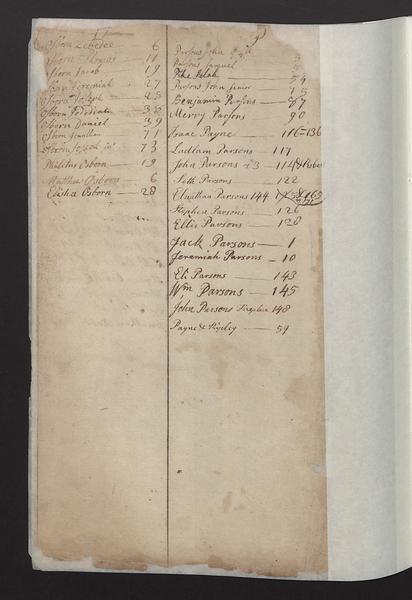 Osborn Zebedee 6
Osborn Thomas 11
Osborn Jacob 19
Osborn Jeremiah 27
Osborn Joseph
Osborn
Osborn Daniel 39
Osborn Jonathan 71
Osborn Joseph 73
Philetus Osborn 19
Matthew Osborn 6
Elisha Osborn 28
Parsons John
Parsons Samuel
Pike Zelah 54
Parsons John Junior 15
Benjamin Parsons 67
Merry Parsons 90
Isaac Payne 116-136
Ludlam Parsons 117
John Parsons 3 114
Seth Parsons 122
Elnathan Parsons 144
Stephen Parsons 126
Ellis Parsons 128
Jack Parsons 1
Jeremiah Parsons 10
Eli Parsons 143
Wm Parsons 145
John Parsons 148
Payne & Ripley 59